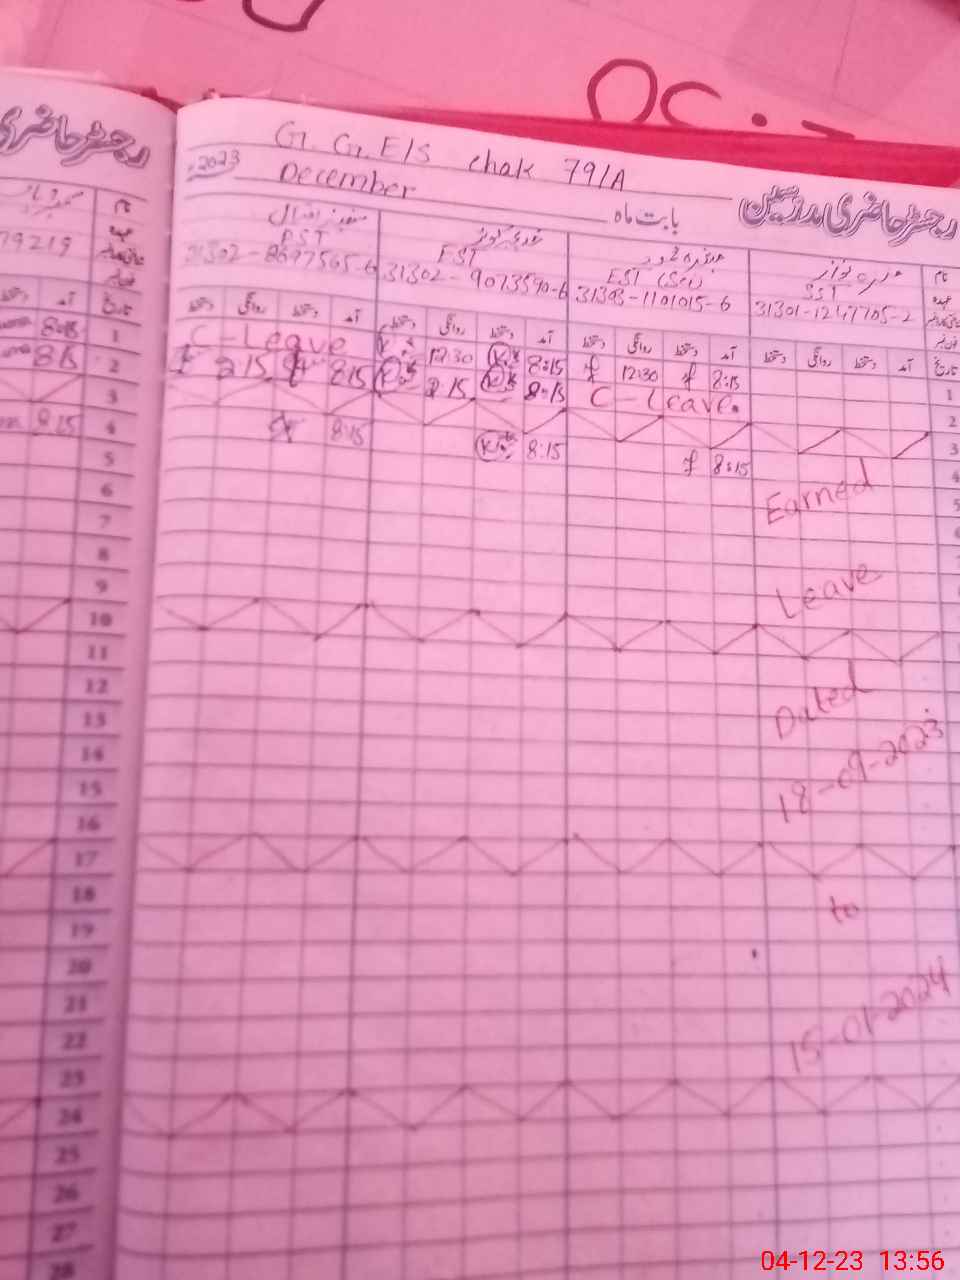 OC.
رجسٹر حاضری
رجسٹر حاضری مدرسین
G. G. E/S chak 79/A
2023
December
بابت ماہ
PST
EST
EST (Sci)
SST
79219
31302-8697565-6
31302-9073590-6
31303-1101015-6
31301-1247705-2
نام
عہدہ
تاریخ
آمد دستخط روانگی دستخط
آمد دستخط روانگی دستخط
آمد دستخط روانگی دستخط
آمد دستخط روانگی دستخط
8:15 1 C-Leave 12:30 8:15 12:30 8:15 1
8:15 2 2:15 8:15 2:15 8:15 C-Leave. 2
3 3
8:15 4 8:15 8:15 8:15 4
5 5
6
7
8
9
10
11
12
13
14
15
16
17
18
19
20
21
22
23
24
25
26
27
28
Earned
Leave
Dated
18-09-2023
to
15-01-2024
04-12-23 13:56